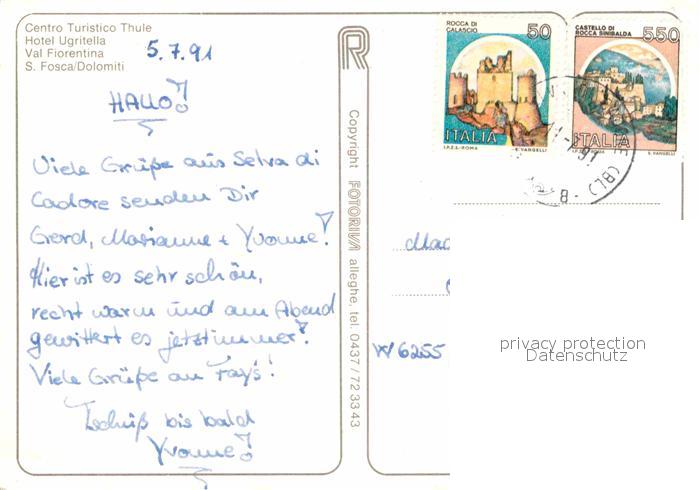 Centro Turistico Thule
Hotel Ugritella
Val Fiorentina
S. Fosca/Dolomiti
5.7.91
HALLO!
Viele Grüße aus Selva di
Cadore senden Dir
Gerd, Marianne + Yvonne!
Hier ist es sehr schön,
recht warm und am Abend
gewittert es jetzt immer!
Viele Grüße an Fay's!
Tschüß bis bald
Yvonne!
R
Copyright FOTORIVA alleghe, tel. 0437/72 33 43
ROCCA DI
CALASCIO
50
ITALIA
I.P.Z.S.-ROMA E. VANGELLI
CASTELLO DI
ROCCA SINIBALDA
550
ITALIA
I.P.Z.S.-ROMA E. VANGELLI
(BL)
W 6255
privacy protection
Datenschutz